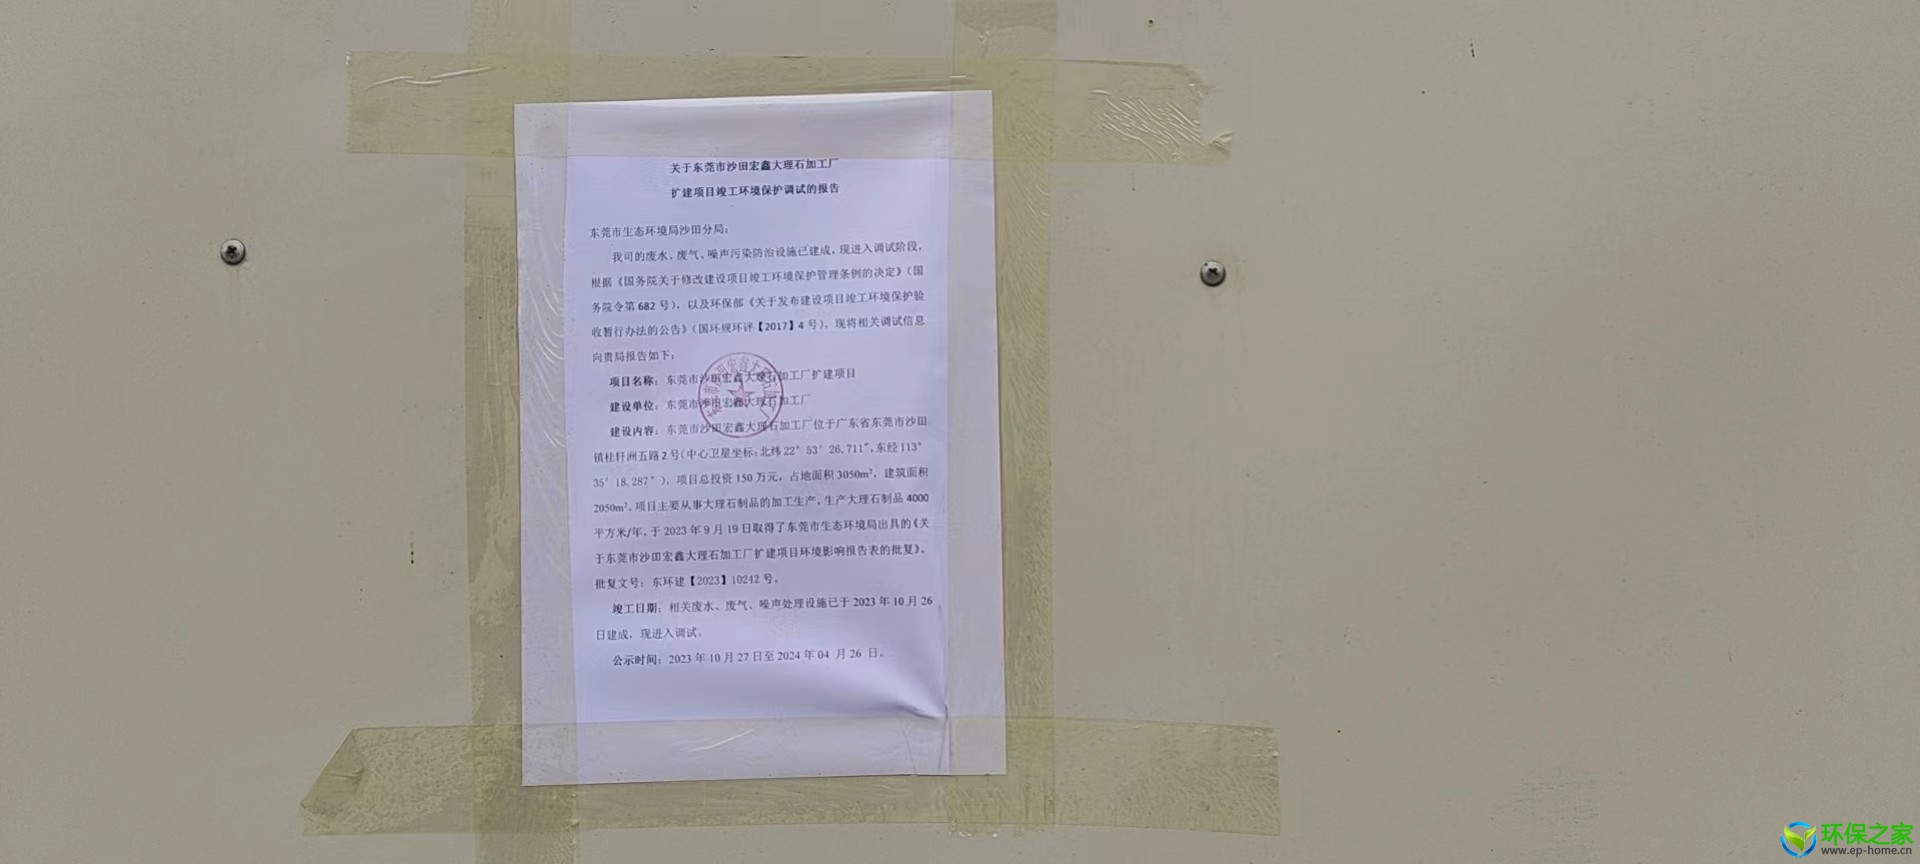 关于东莞市沙田宏鑫大理石加工厂
扩建项目竣工环境保护调试的报告
东莞市生态环境局沙田分局：
我司的废水、废气、噪声污染防治设施已建成，现进入调试阶段，
根据《国务院关于修改建设项目竣工环境保护管理条例的决定》（国
务院令第 682 号），以及环保部《关于发布建设项目竣工环境保护验
收暂行办法的公告》（国环规环评【2017】4 号），现将相关调试信息
向贵局报告如下：
项目名称：东莞市沙田宏鑫大理石加工厂扩建项目
建设单位：东莞市沙田宏鑫大理石加工厂
建设内容：东莞市沙田宏鑫大理石加工厂位于广东省东莞市沙田
镇桂轩洲五路 2 号（中心卫星坐标：北纬 22° 53′ 26.711″，东经 113°
35′ 18.287″），项目总投资 150 万元，占地面积 3050m²，建筑面积
2050m²，项目主要从事大理石制品的加工生产，生产大理石制品 4000
平方米/年，于 2023 年 9 月 19 日取得了东莞市生态环境局出具的《关
于东莞市沙田宏鑫大理石加工厂扩建项目环境影响报告表的批复》，
批复文号：东环建【2023】10242 号。
竣工日期：相关废水、废气、噪声处理设施已于 2023 年 10 月 26
日建成，现进入调试。
公示时间：2023 年 10 月 27 日至 2024 年 04 月 26 日。
环保之家
www.ep-home.cn